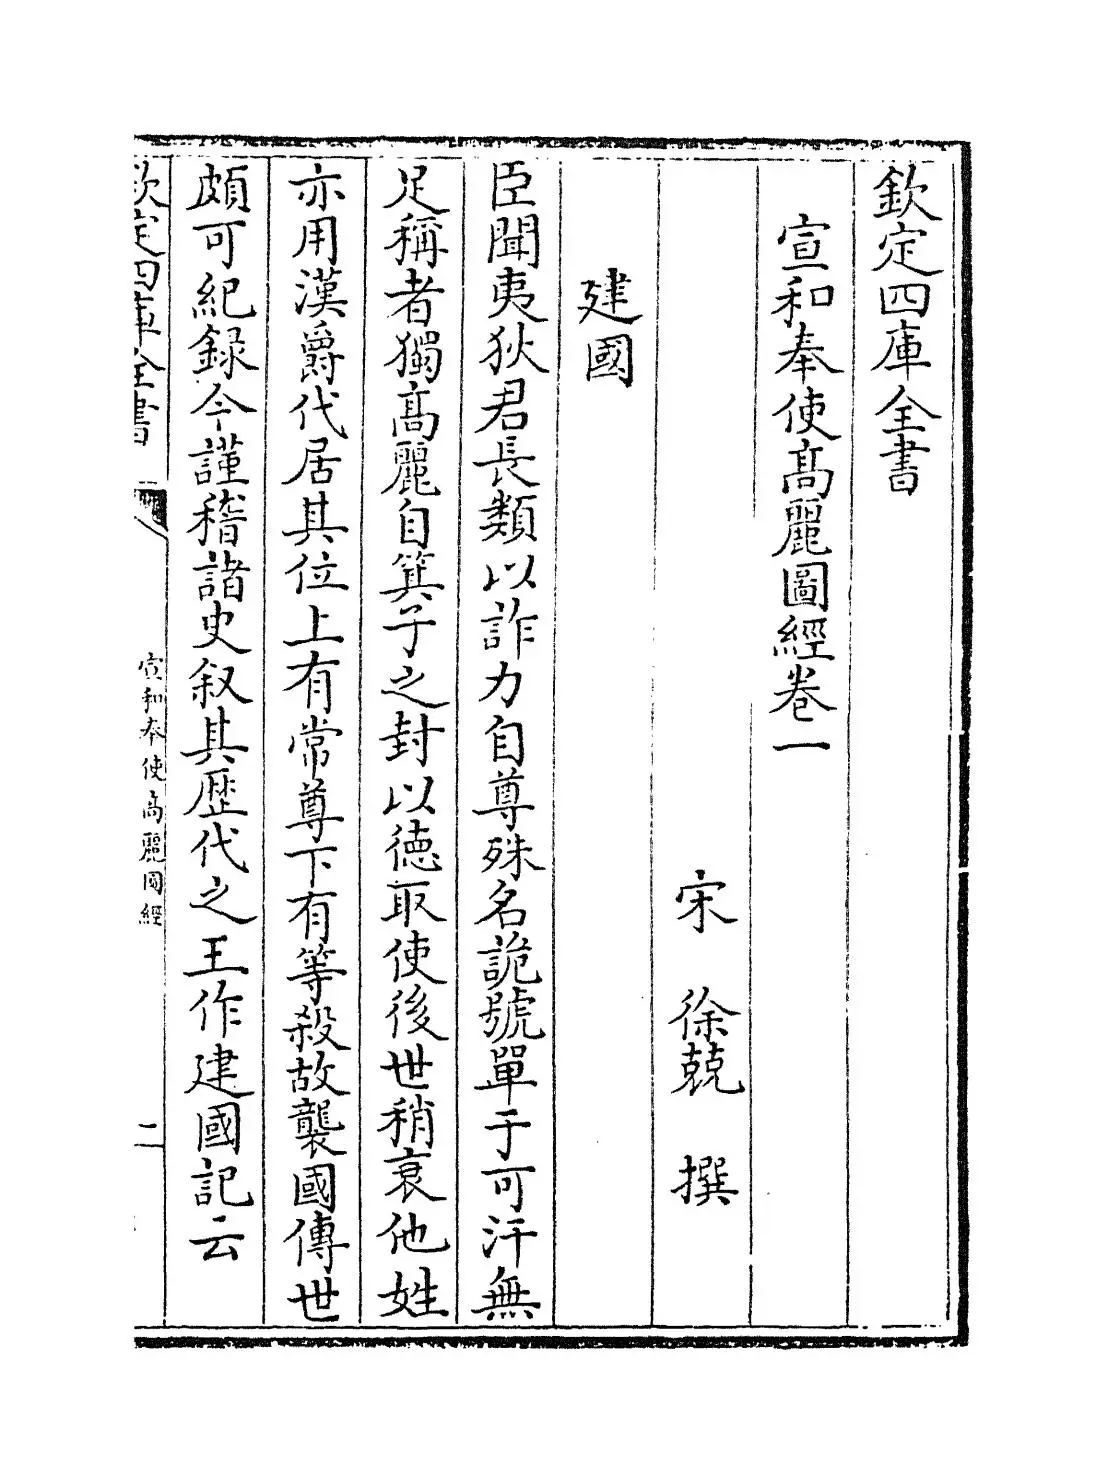 欽定四庫全書
宣和奉使髙麗圖經卷一
宋 徐兢 撰
建國
臣聞夷狄君長類以詐力自尊殊名詭號單于可汗無
足稱者獨髙麗自箕子之封以德取使後世稍衰他姓
亦用漢爵代居其位上有常尊下有等殺故襲國傳世
頗可紀録今謹稽諸史叙其歴代之王作建國記云
欽定四庫全書
宣和奉使高麗圖經
二